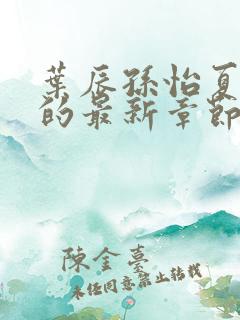 葉辰孫怡夏
的最新章節
陳金臺
未經同意禁止轉載